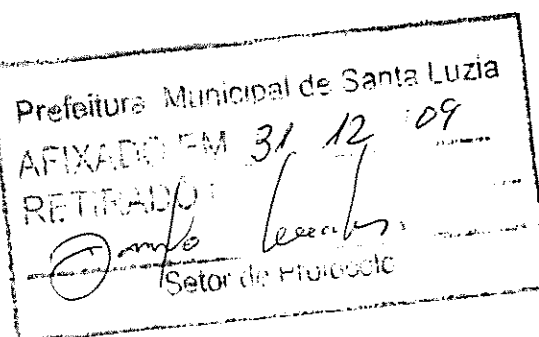 Prefeitura Municipal de Santa Luzia
AFIXADO EM 31 12 09
RETIRADO
Setor de Protocolo